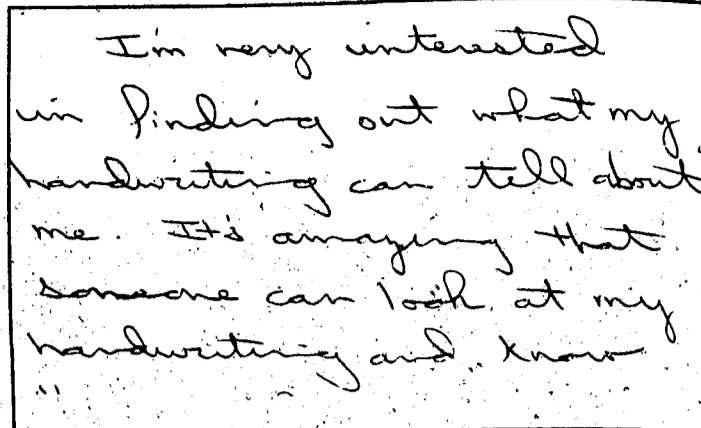 I'm very interested
in finding out what my
handwriting can tell about
me. It's amazing that
someone can look at my
handwriting and know
"